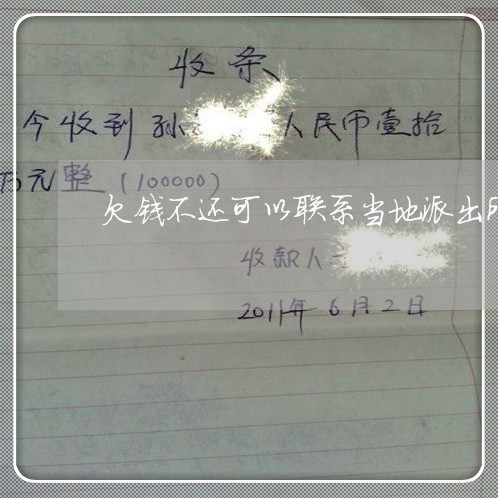 收条
今收到孙 人民币壹拾
万元整(100000)
欠钱不还可以联系当地派出
收款人
2011年6月2日